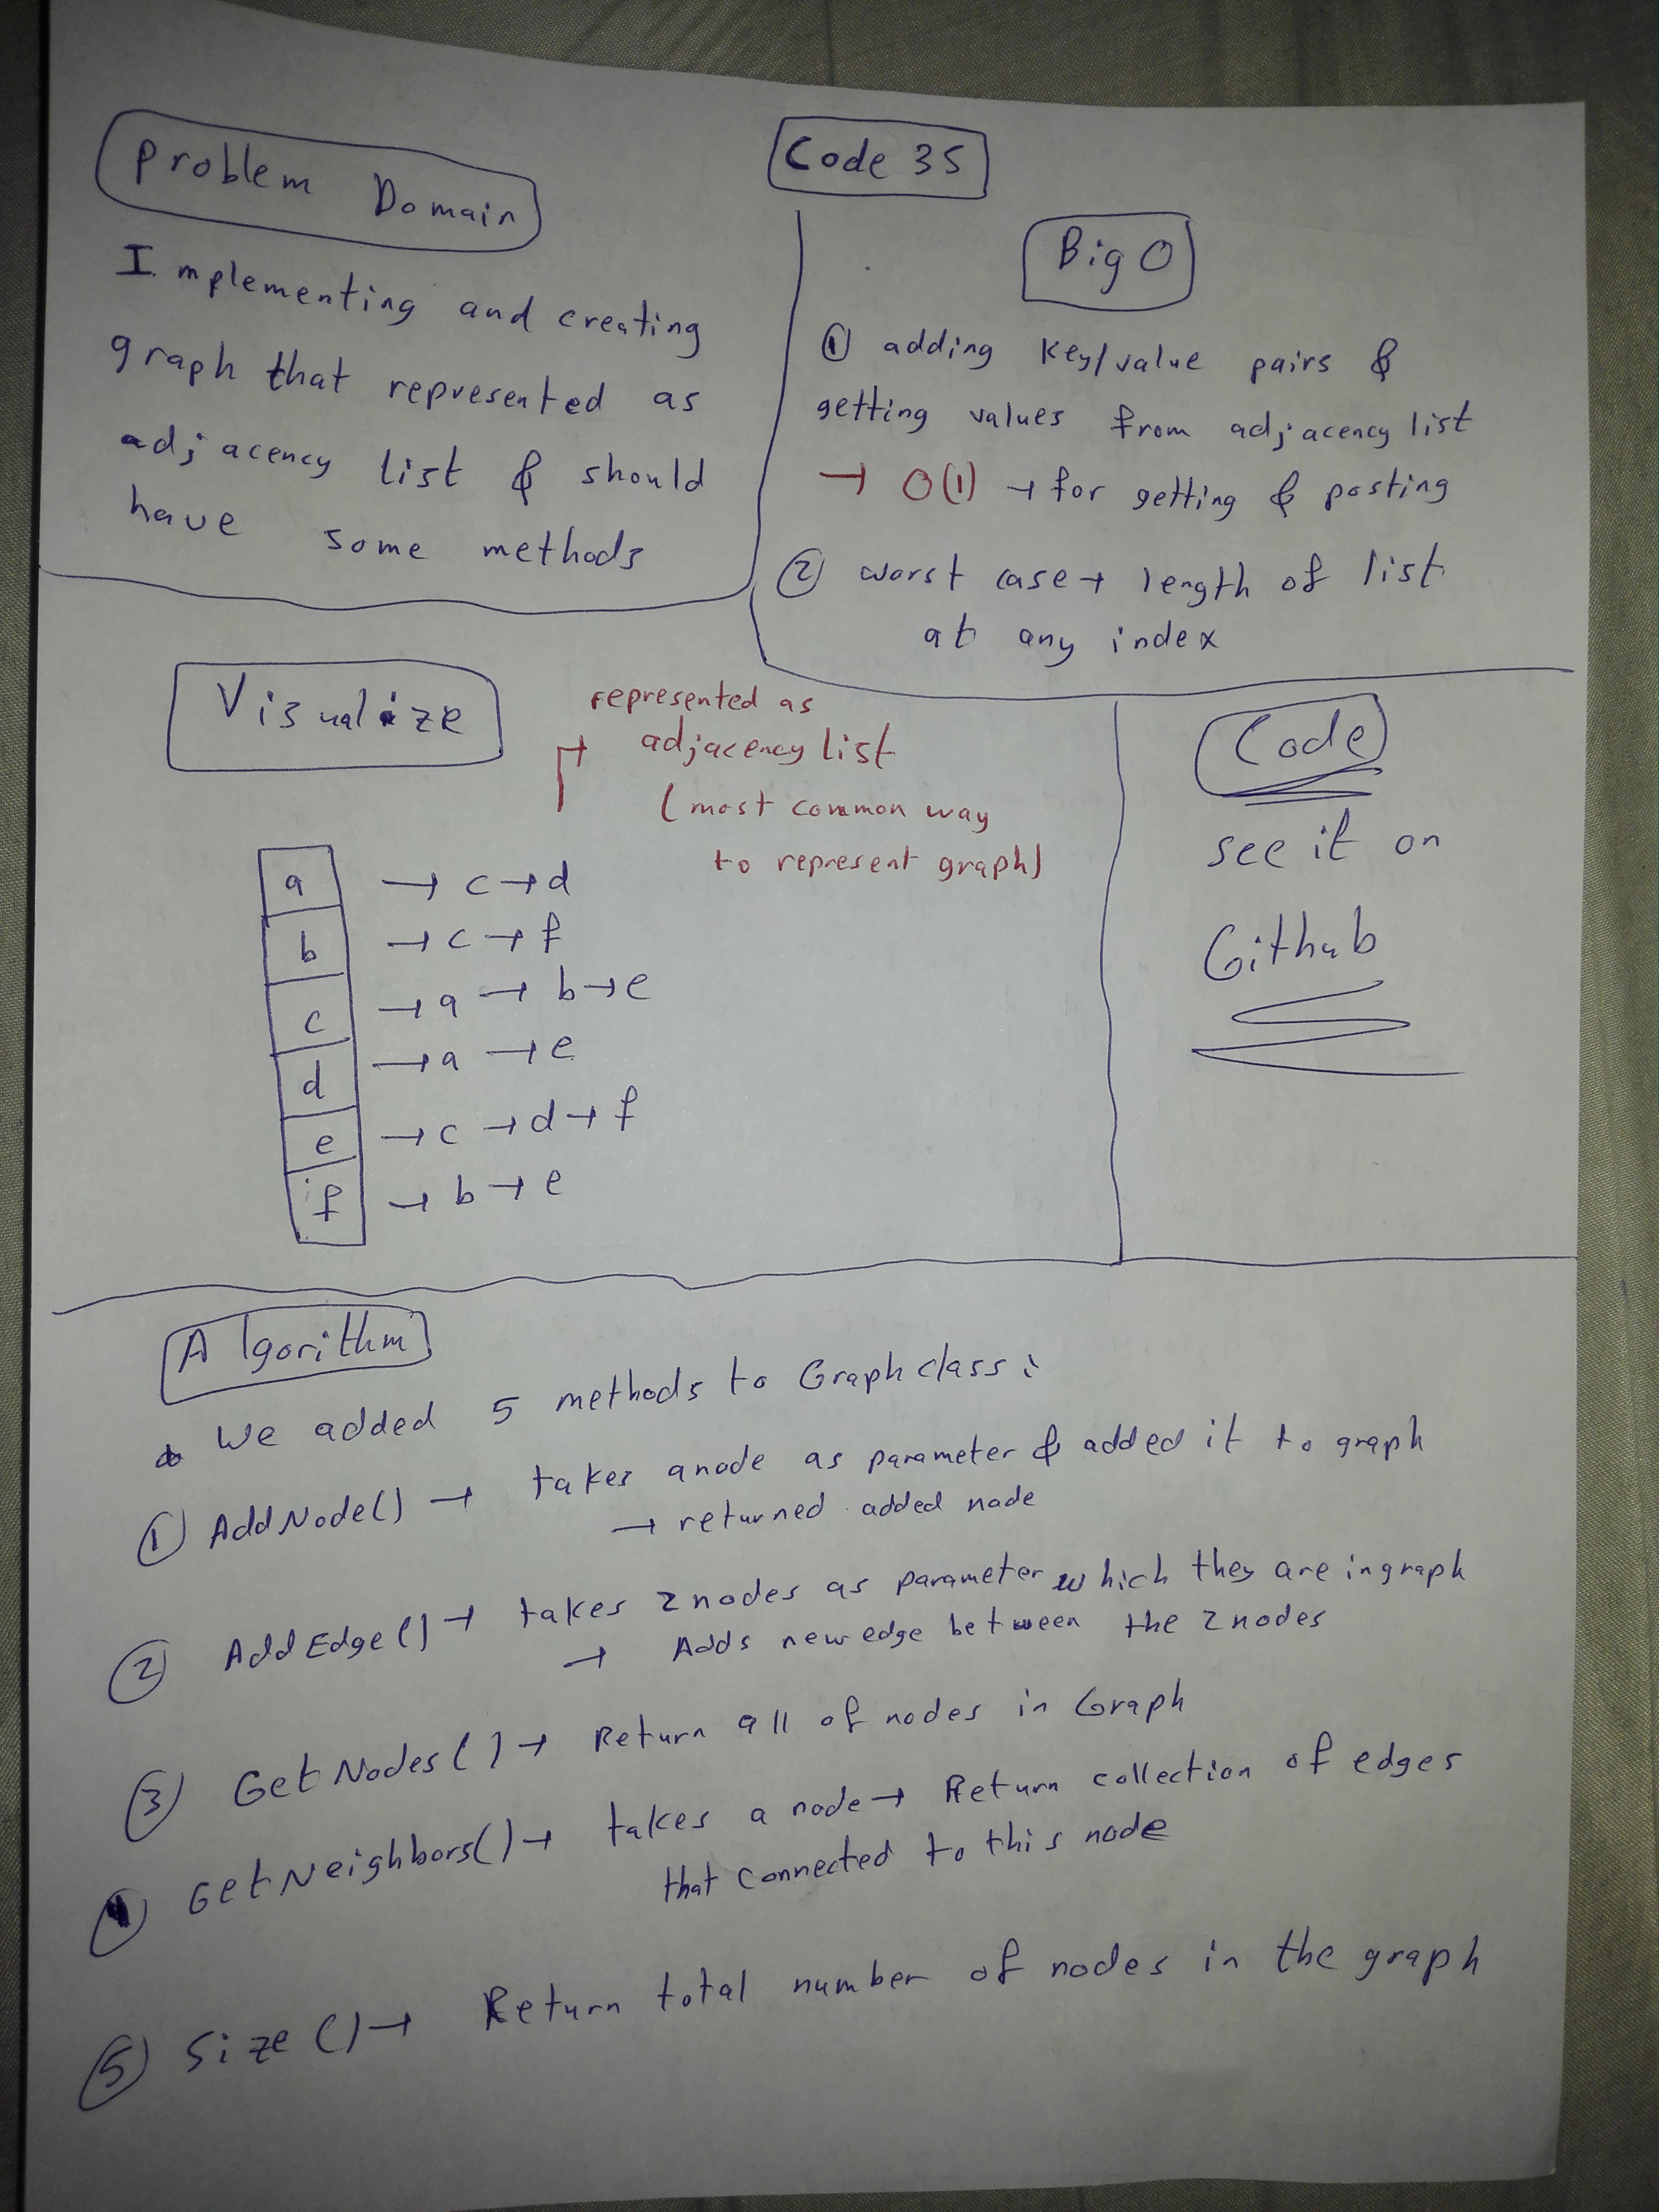 Code 35
Problem Domain
Implementing and creating
graph that represented as
adjacency list & should
have some methods
Big O
① adding key/value pairs &
getting values from adjacency list
→ O(1) → for getting & posting
② worst case → length of list
at any index
Visualize
represented as
adjacency list
(most common way
to represent graph)
a → c → d
b → c → f
c → a → b → e
d → a → e
e → c → d → f
f → b → e
Code
see it on
Github
Algorithm
We added 5 methods to Graph class:
① AddNode() → takes a node as parameter & added it to graph
→ returned added node
② AddEdge() → takes 2 nodes as parameter which they are in graph
→ Adds new edge between the 2 nodes
③ GetNodes() → Return all of nodes in Graph
④ GetNeighbors() → takes a node → Return collection of edges
that connected to this node
⑤ Size() → Return total number of nodes in the graph